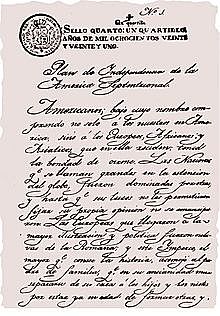 Nº 1
Un quartillo
SELLO QUARTO: UN QUARTILLO
AÑOS DE MIL OCHOCIENTOS VEINTE
Y VEINTE Y UNO.
Plan de Independencia de la
America Septentrional.
Americanos, bajo cuyo nombre com
prendo no solo a los nacidos en Ame
rica, sino a los Europeos, Africanos y
Asiaticos, que en ella residen: tened
la bondad de oirme. Las Naciones
qe. se llaman grandes en la extension
del globo, fueron dominadas por otras;
y hasta qe. sus luces no les permitieron
fijar su propia opinion no se emancipa
ron. Las Europeas que llegaron a la
mayor ilustracion y policia, fueron escla
vas de la Romana; y este Imperio, el
mayor qe. conoce la historia, asemejó al pa
dre de familias, qe. en su ancianidad mira
separarse de su casa a los hijos y los nietos
por estar ya en edad de formar otras, y